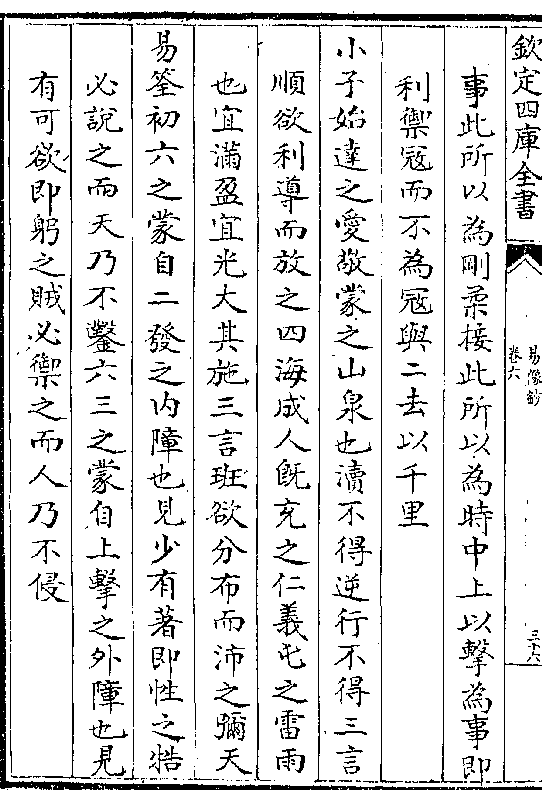 欽定四庫全書
易像鈔
卷六
三十六
事此所以為剛柔接此所以為時中上以擊為事即
利禦寇而不為寇與二去以千里
小子始達之愛敬蒙之山泉也瀆不得逆行不得三言
順欲利導而放之四海成人旣充之仁義屯之雷雨
也宜滿盈宜光大其施三言班欲分布而沛之彌天
易筌初六之蒙自二發之内障也見少有著即性之牿
必說之而天乃不鑿六三之蒙自上擊之外障也見
有可欲即躬之賊必禦之而人乃不侵